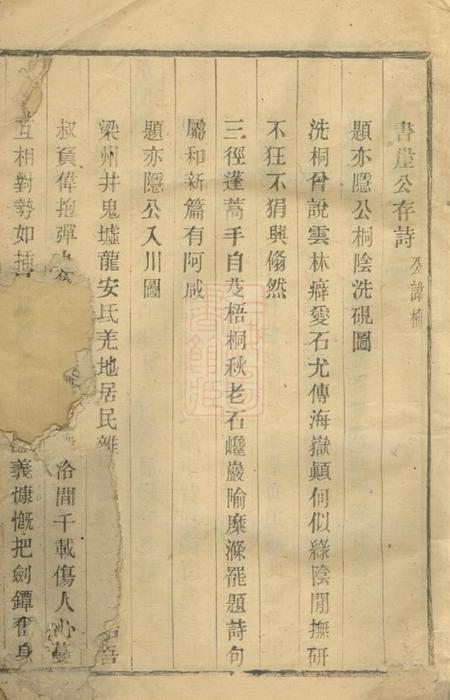 書崖公存詩 公諱楠
題亦隱公桐陰洗硯圖
洗桐曾說雲林癖愛石尤傳海嶽顛何似綠陰閒撫研
不狂不狷興翛然
三徑蓬蒿手自芟梧桐秋老石巉巖喻糜滌罷題詩句
屬和新篇有阿咸
題亦隱公入川圖
梁州井鬼墟龍安氐羌地居民雜 吾
叔負偉抱彈 洛閒千載傷人心蔓
互相對勢如插 義慷慨把劍鐔奮身